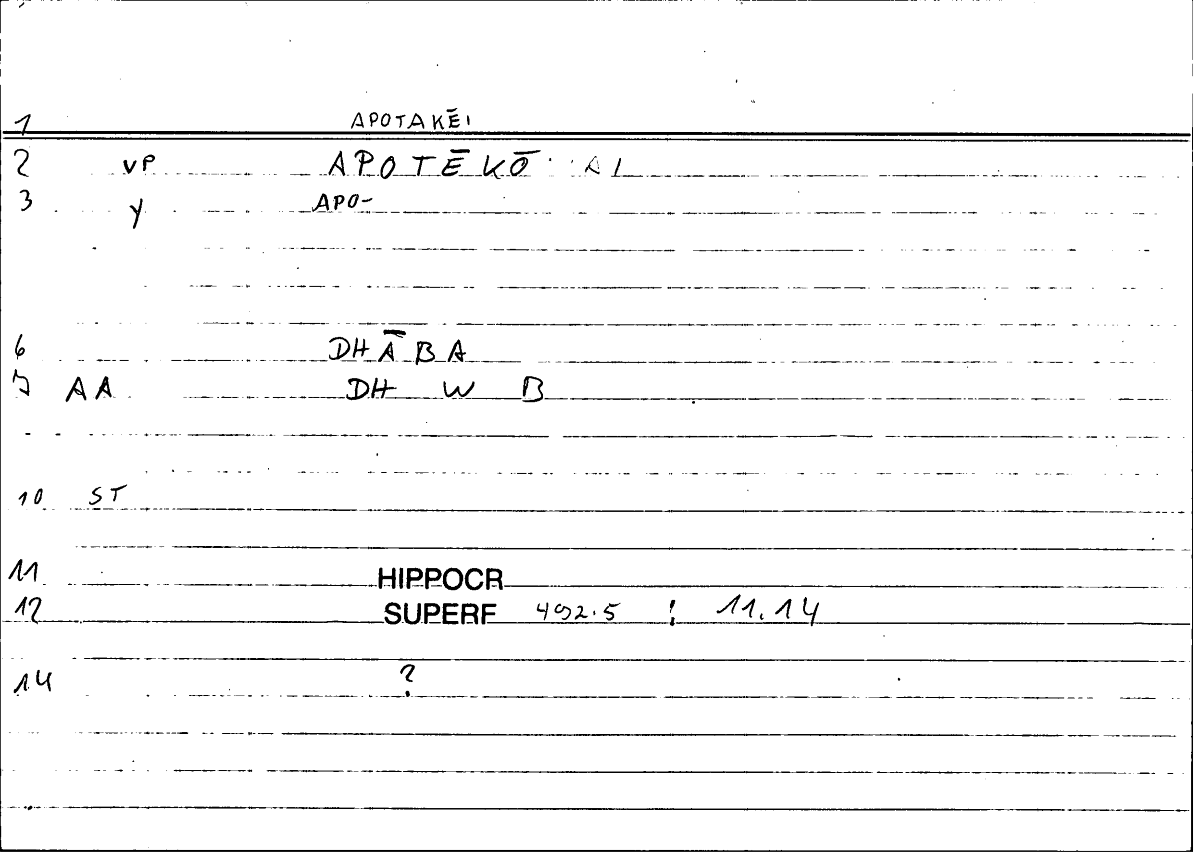 1 APOTAKĒI
2 VP APOTĒKŌ AI
3 y APO-
6 DHĀBA
7 AA DH W B
10 ST
11 HIPPOCR
12 SUPERF 492.5 ! 11.14
14 ?